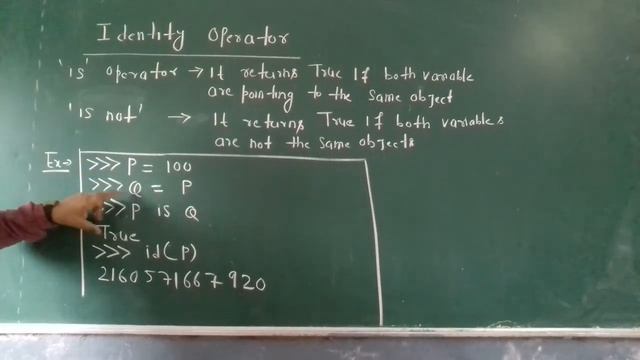 Identity Operator
'is' operator → It returns True If both variable
are pointing to the same object
'is not' → It returns True if both variables
are not the same objects
Ex→ >>> P = 100
>>> Q = P
>>> P is Q
True
>>> id(P)
2160571667920